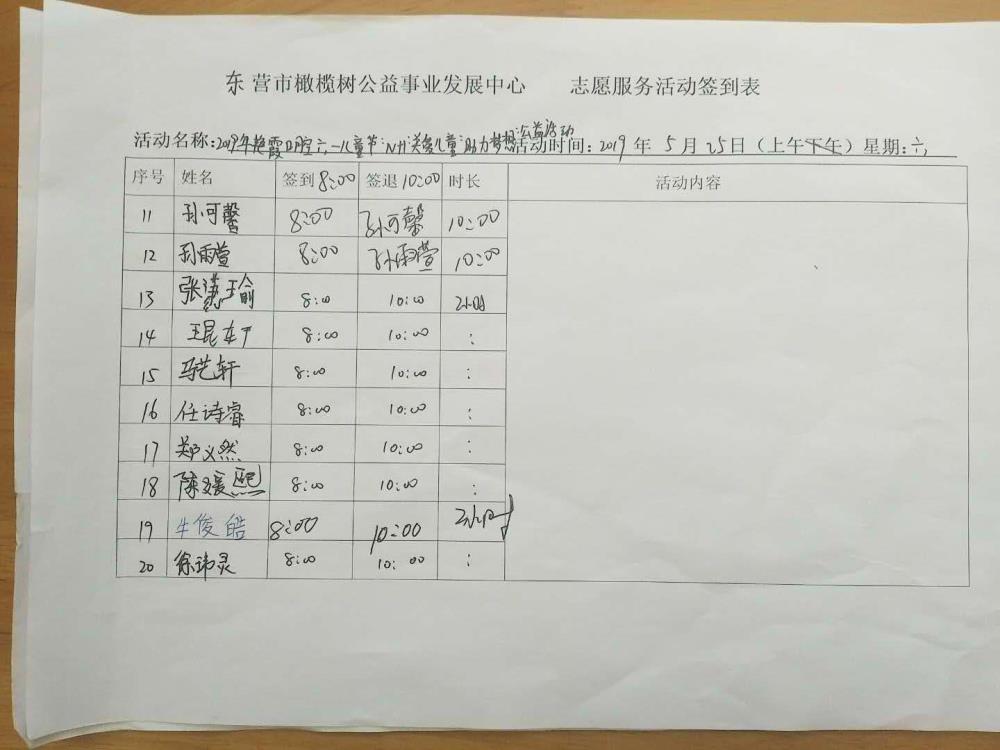 东营市橄榄树公益事业发展中心 志愿服务活动签到表
活动名称:2019年艳霞口腔六一儿童节"关爱儿童 助力梦想"公益活动 活动时间:2019年5月25日(上午下午)星期:六
序号 姓名 签到8:00 签退10:00 时长 活动内容
11 孙可馨 8:00 孙可馨 10:00
12 孙雨萱 8:00 孙雨萱 10:00
13 张瀵瑜 8:00 10:00 2小时
14 王昆 8:00 10:00 :
15 马艺轩 8:00 10:00 :
16 任诗睿 8:00 10:00 :
17 郑义然 8:00 10:00 :
18 陈媛熙 8:00 10:00 :
19 牛俊皓 8:00 10:00 2小时
20 徐玮灵 8:00 10:00 :